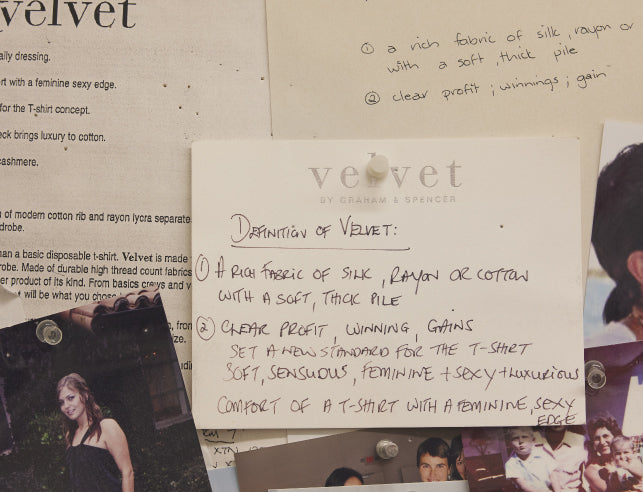 velvet
ally dressing.
rt with a feminine sexy edge.
for the T-shirt concept.
eck brings luxury to cotton.
cashmere.
of modern cotton rib and rayon lycra separate
drobe.
an a basic disposable t-shirt. Velvet is made
robe. Made of durable high thread count fabrics
er product of its kind. From basics crews and v
will be what you choos
, from
ize.
① a rich fabric of silk, rayon or
with a soft, thick pile
② clear profit; winnings; gain
velvet
BY GRAHAM & SPENCER
DEFINITION OF VELVET:
① A RICH FABRIC OF SILK, RAYON OR COTTON
WITH A SOFT, THICK PILE
② CLEAR PROFIT, WINNING, GAINS
SET A NEW STANDARD FOR THE T-SHIRT
SOFT, SENSUOUS, FEMININE + SEXY + LUXURIOUS
COMFORT OF A T-SHIRT WITH A FEMININE, SEXY
EDGE